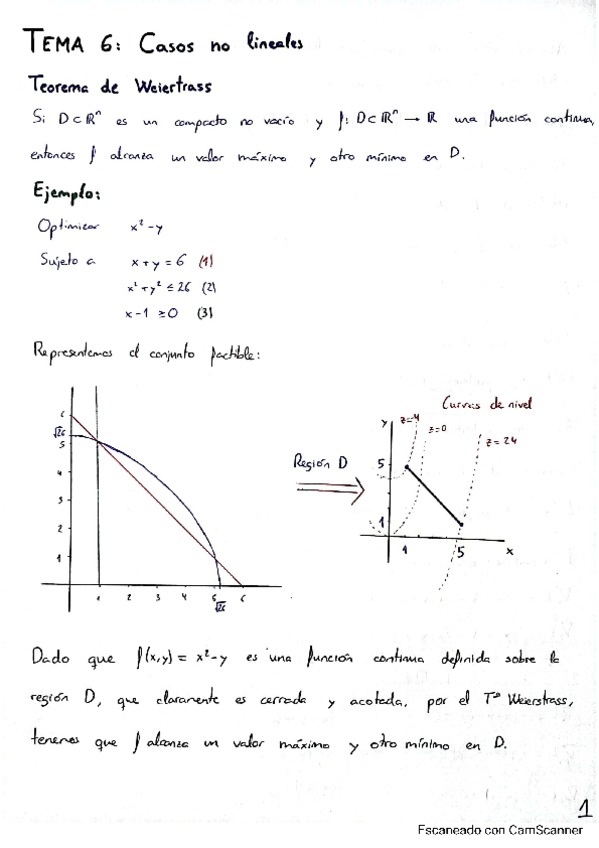 TEMA 6: Casos no lineales
Teorema de Weiertrass
Si D ⊂ ℝⁿ es un compacto no vacío y f: D ⊂ ℝⁿ → ℝ una función continua,
entonces f alcanza un valor máximo y otro mínimo en D.
Ejemplo:
Optimizar x² - y
Sujeto a x + y = 6 (1)
x² + y² ≤ 26 (2)
x - 1 ≥ 0 (3)
Representemos el conjunto factible:
Curvas de nivel
6
√26
5
4
3
2
1
1 2 3 4 5 √26 6
Región D
y
z=-4
z=0
z=24
5
1
1 5 x
Dado que f(x,y) = x² - y es una función continua definida sobre la
región D, que claramente es cerrada y acotada, por el Tª Weierstrass,
tenemos que f alcanza un valor máximo y otro mínimo en D.
1
Escaneado con CamScanner